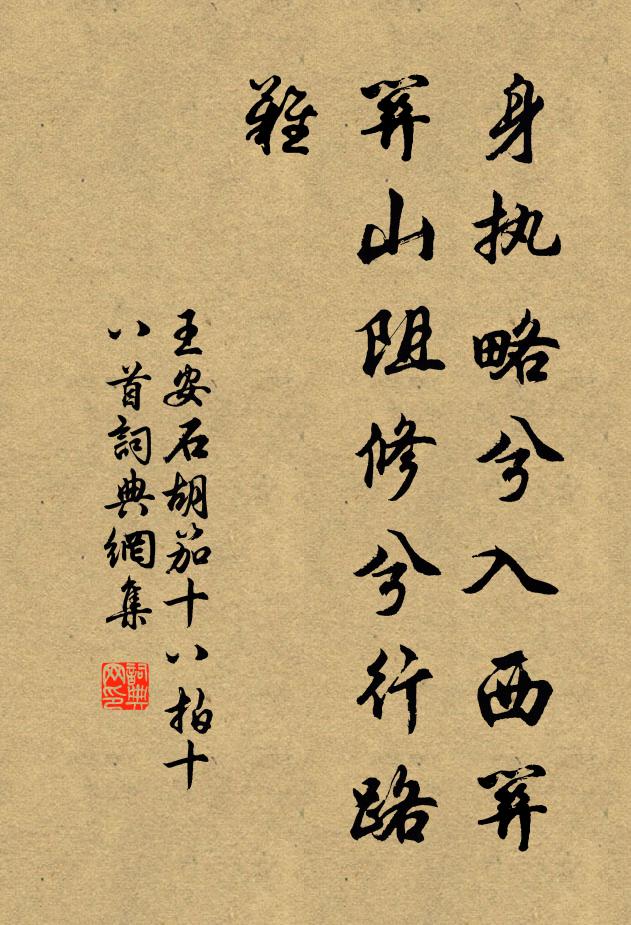 身执略兮入西关
关山阻修兮行路
難
王安石胡笳十八拍十
八首詞典網集
詞典
网印